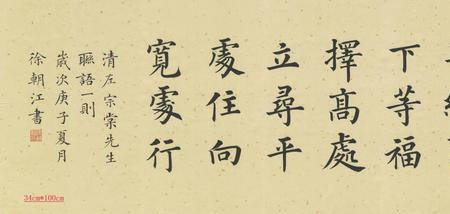 下等福
擇髙處
立尋平
處住向
寬處行
清左宗棠先生
聯語一則
歲次庚子夏月
徐朝江書
34cm*100cm